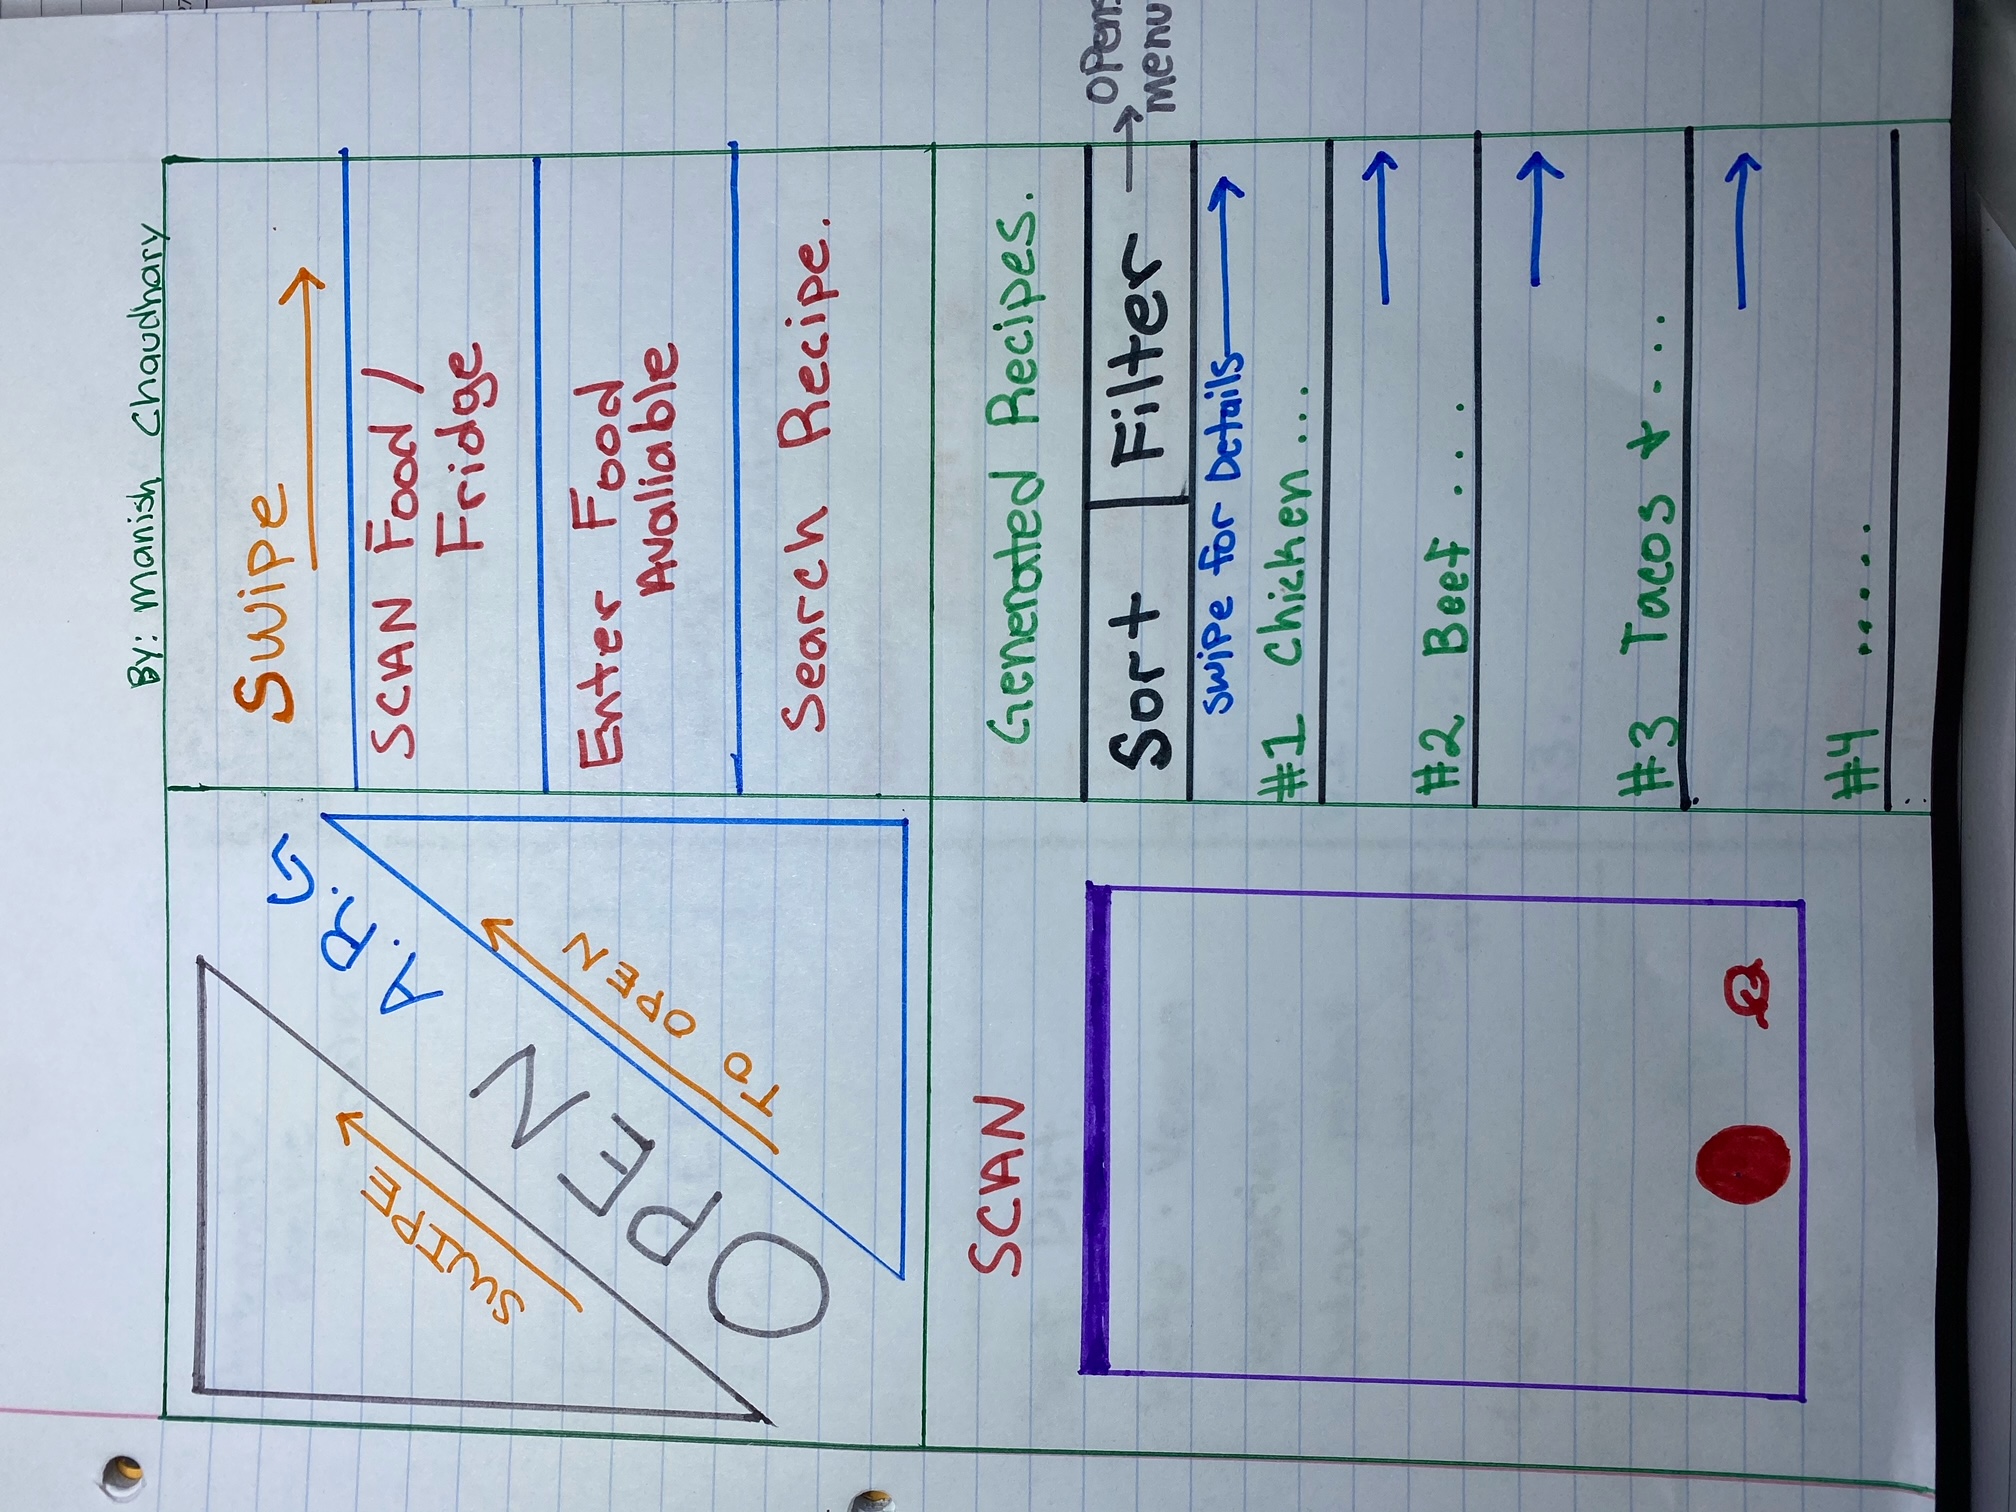 By: Manish Chaudhary
SWIPE
OPEN A.R.G
TO OPEN
Swipe
SCAN Food /
Fridge
Enter Food
Avaliable
Search Recipe.
SCAN
Generated Recipes.
Sort | Filter
Opens
menu
Swipe for Details
#1 Chicken ...
#2 Beef ....
#3 Tacos & ...
#4 .....